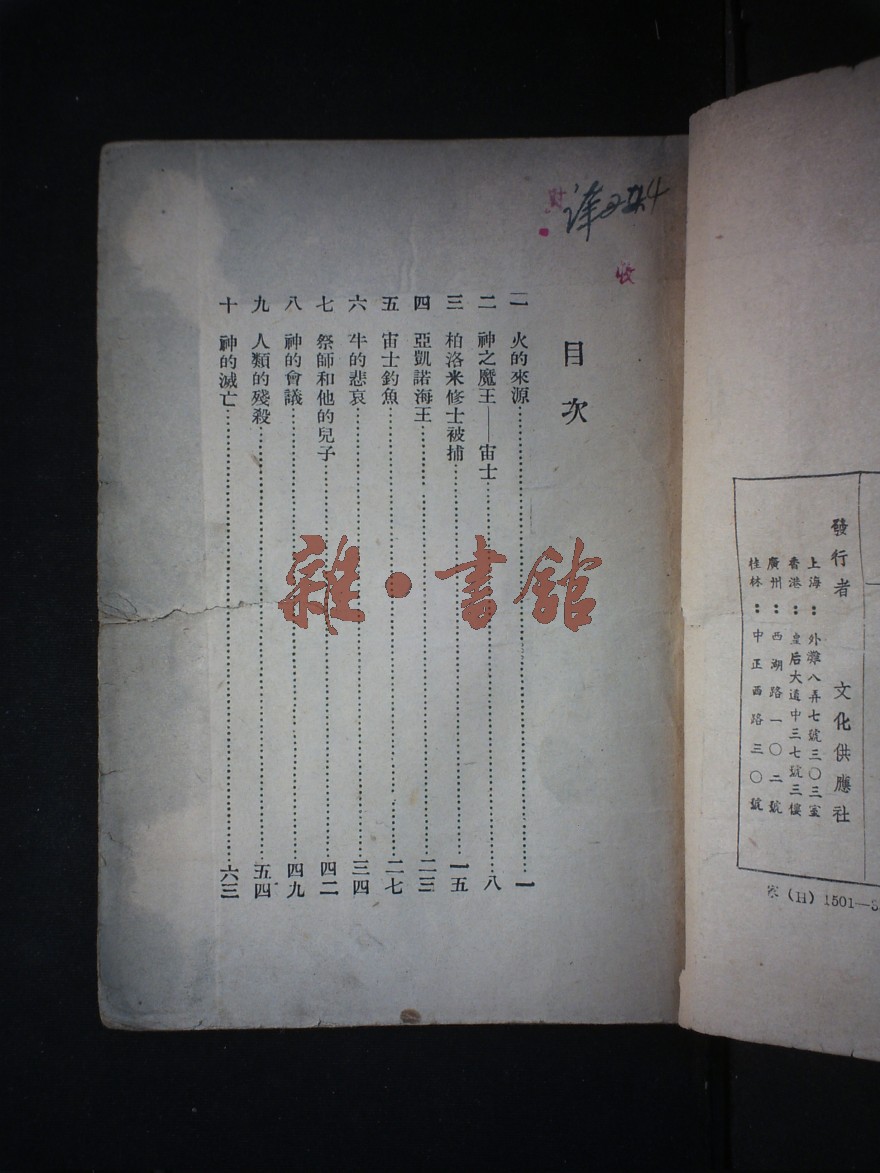 目次
一 火的來源……一
二 神之魔王——宙士……八
三 柏洛米修士被捕……一五
四 亞凱諾海王……二三
五 宙士釣魚……二七
六 牛的悲哀……三四
七 祭師和他的兒子……四二
八 神的會議……四九
九 人類的殘殺……五四
十 神的滅亡……六三
收
雜·書館
發行者 文化供應社
上海：外灘八弄七號三〇三室
香港：皇后大道中三七號三樓
廣州：西湖路一〇二號
桂林：中正西路三〇號
(H) 1501—3